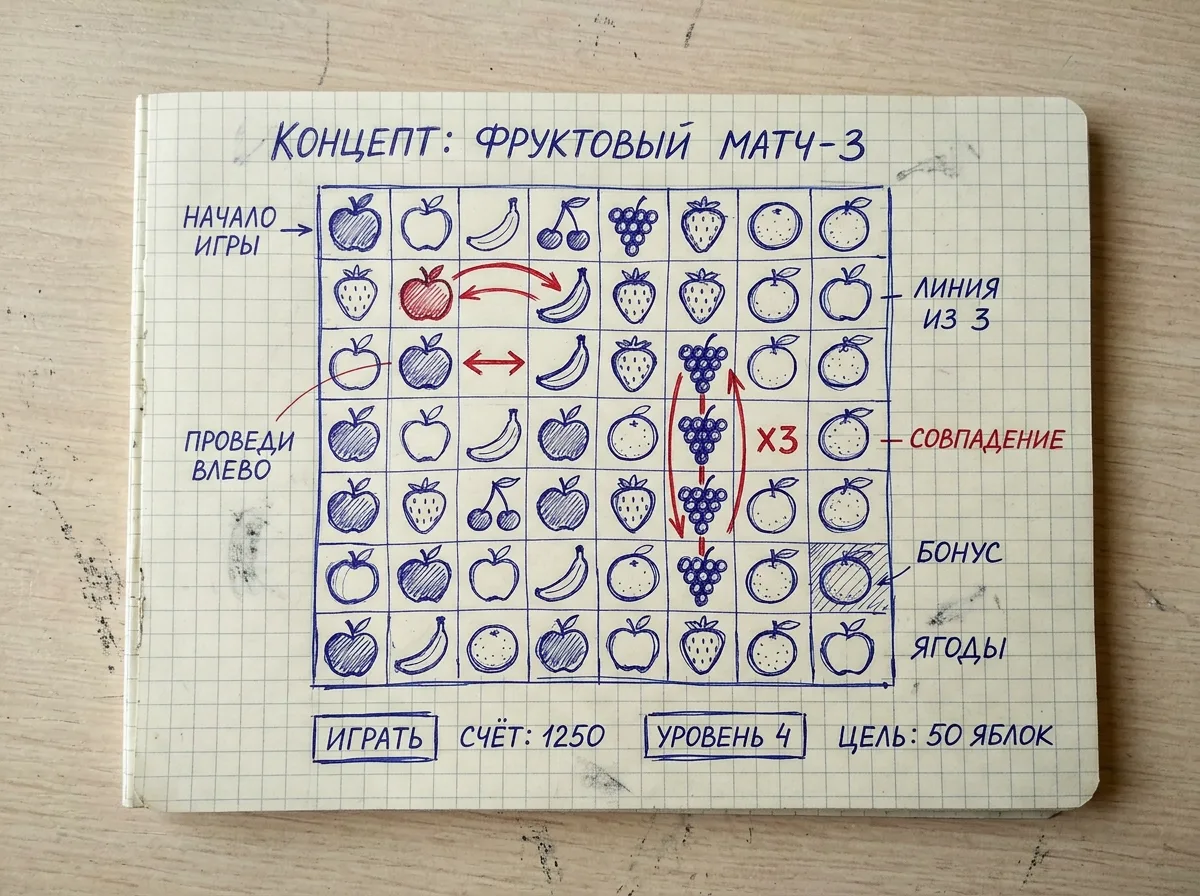 КОНЦЕПТ: ФРУКТОВЫЙ МАТЧ-3
НАЧАЛО
ИГРЫ
ЛИНИЯ
ИЗ 3
ПРОВЕДИ
ВЛЕВО
X3
СОВПАДЕНИЕ
БОНУС
ЯГОДЫ
ИГРАТЬ
СЧЁТ: 1250
УРОВЕНЬ 4
ЦЕЛЬ: 50 ЯБЛОК